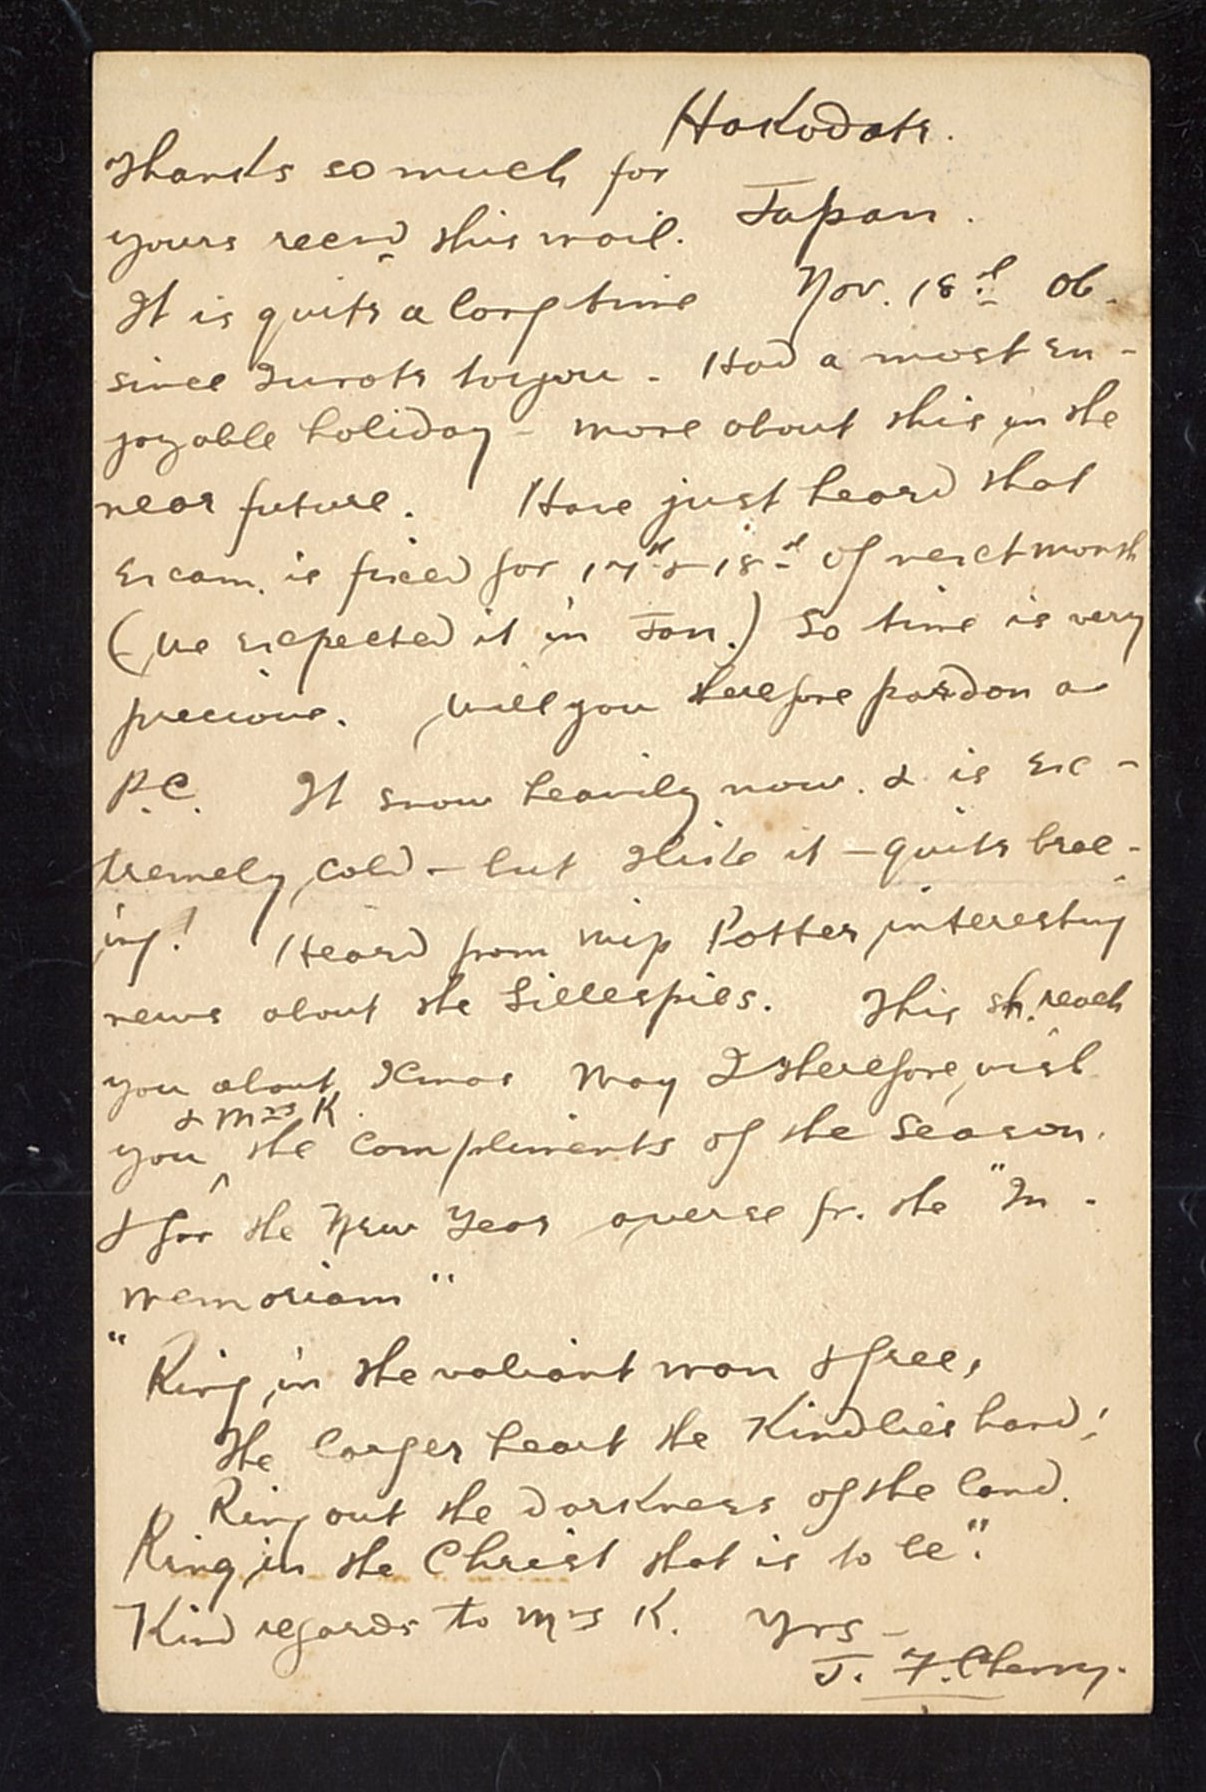 Hakodate.
Thanks so much for
Japan.
yours recd this mail.
Nov. 18th 06.
It is quite a long time
since I wrote to you - Had a most en-
joyable holiday - more about this in the
near future. Have just heard that
exam. is fixed for 17th & 18th of next month
(we expected it in Jan.) So time is very
precious. Will you therefore pardon a
P.C. It snow heavily now. & is ex-
tremely cold - but I like it - quite brac-
ing! Heard from Miss Potter interesting
news about the Gillespies. This sh. reach
you about Xmas May I therefore wish
& Mrs K.
you ^ the compliments of the Season.
& for the New Year a verse fr. the "In -
memoriam"
"Ring in the valiant man & free,
The larger heart the Kindlier hand;
Ring out the darkness of the land.
Ring in the Christ that is to be".
Kind regards to Mrs K. Yrs -
J. F. Cherry.